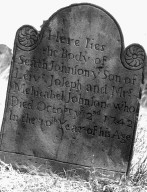 Here lies
the Body of
Seth Johnson Son of
Lievt Joseph and Mrs
Mehitabel Johnson who
Died Octbr y 2d 1742
In the Year of his Age